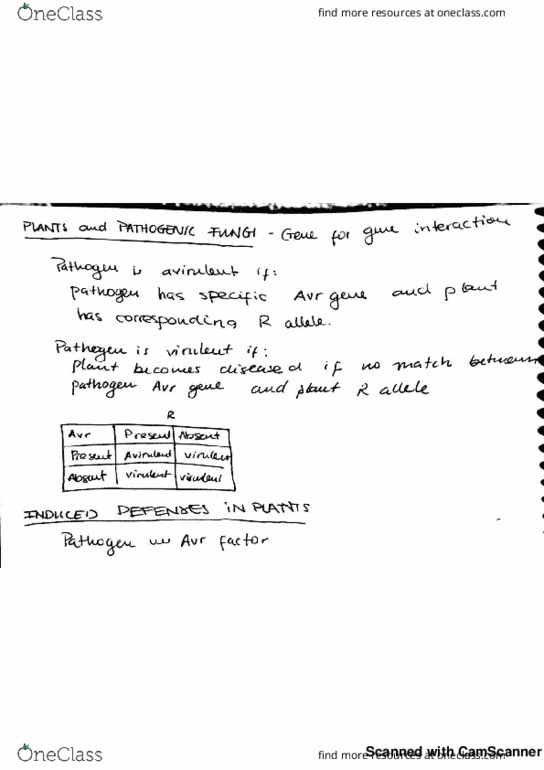 OneClass find more resources at oneclass.com
PLANTS and PATHOGENIC FUNGI - Gene for gene interaction
Pathogen is avirulent if:
pathogen has specific Avr gene and plant
has corresponding R allele.
Pathogen is virulent if:
plant becomes diseased if no match between
pathogen Avr gene and plant R allele
R
Avr Present Absent
Present Avirulent virulent
Absent virulent virulent
INDUCED DEFENSES IN PLANTS
Pathogen w Avr factor
OneClass find more resources at oneclass.com
Scanned with CamScanner